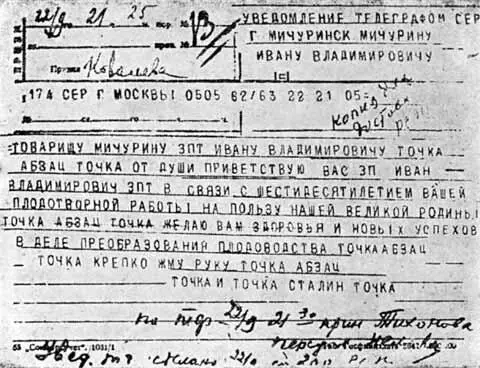 22/9 21 25 пор. №
УВЕДОМЛЕНИЕ ТЕЛЕГРАФОМ СЕР
Г МИЧУРИНСК МИЧУРИНУ
ИВАНУ ВЛАДИМИРОВИЧУ
Принял Ковалева
174 СЕР Г МОСКВЫ 0505 62/63 22 21 05=
копия
=ТОВАРИЩУ МИЧУРИНУ ЗПТ ИВАНУ ВЛАДИМИРОВИЧУ ТОЧКА
АБЗАЦ ТОЧКА ОТ ДУШИ ПРИВЕТСТВУЮ ВАС ЗП ИВАН
ВЛАДИМИРОВИЧ ЗПТ В СВЯЗИ С ШЕСТИДЕСЯТИЛЕТИЕМ ВАШЕЙ
ПЛОДОТВОРНОЙ РАБОТЫ НА ПОЛЬЗУ НАШЕЙ ВЕЛИКОЙ РОДИНЫ
ТОЧКА АБЗАЦ ТОЧКА ЖЕЛАЮ ВАМ ЗДОРОВЬЯ И НОВЫХ УСПЕХОВ
В ДЕЛЕ ПРЕОБРАЗОВАНИЯ ПЛОДОВОДСТВА ТОЧКА АБЗАЦ
ТОЧКА КРЕПКО ЖМУ РУКУ ТОЧКА АБЗАЦ
ТОЧКА И ТОЧКА СТАЛИН ТОЧКА
по тф 22/9 21 30 прин Тихонова